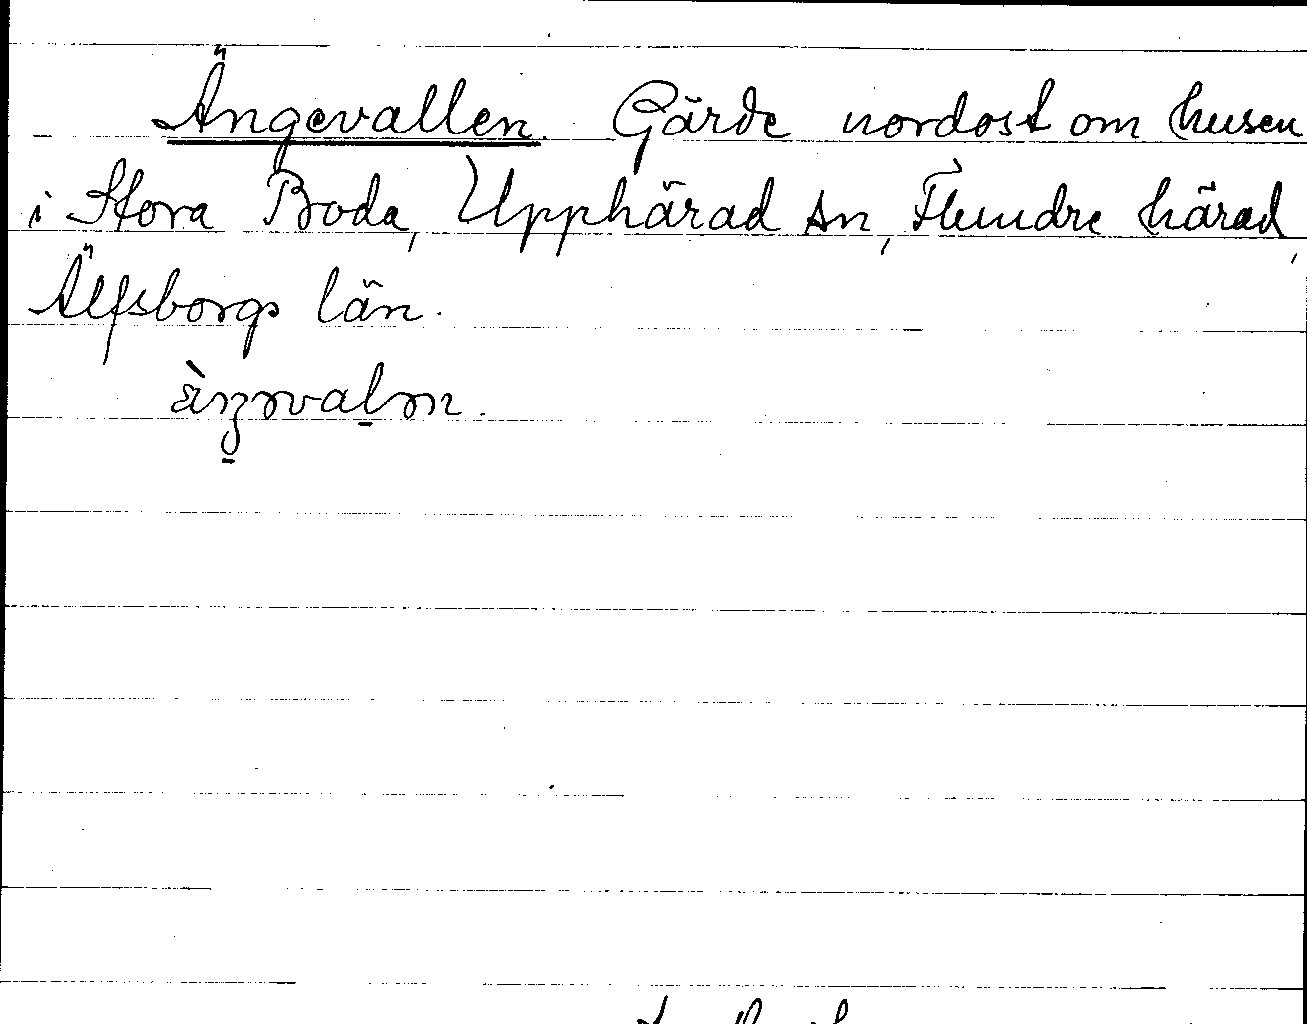 Ängevallen. Gärde nordost om husen
i Stora Boda, Upphärad sn, Flundre härad,
Älfsborgs län.